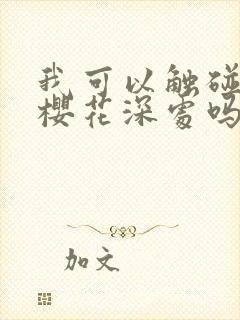 我可以触碰
樱花深处吗
加文